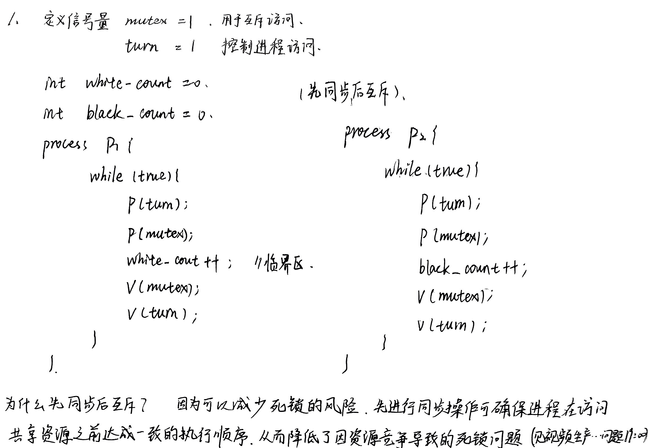 1. 定义信号量 mutex =1 . 用于互斥访问.
turn = 1 控制进程访问.
int white-count =0.
int black_count = 0.
(先同步后互斥).
process P1 {
while (true){
P(turn);
P(mutex);
white-cout ++ ; //临界区.
V(mutex);
V(turn);
}
}.
process P2 {
while (true){
P(turn);
P(mutex);
black_count++;
V(mutex);
V(turn);
}
}
为什么先同步后互斥? 因为可以减少死锁的风险. 先进行同步操作可确保进程在访问
共享资源之前达成一致的执行顺序. 从而降低了因资源竞争导致的死锁问题 (见视频生产